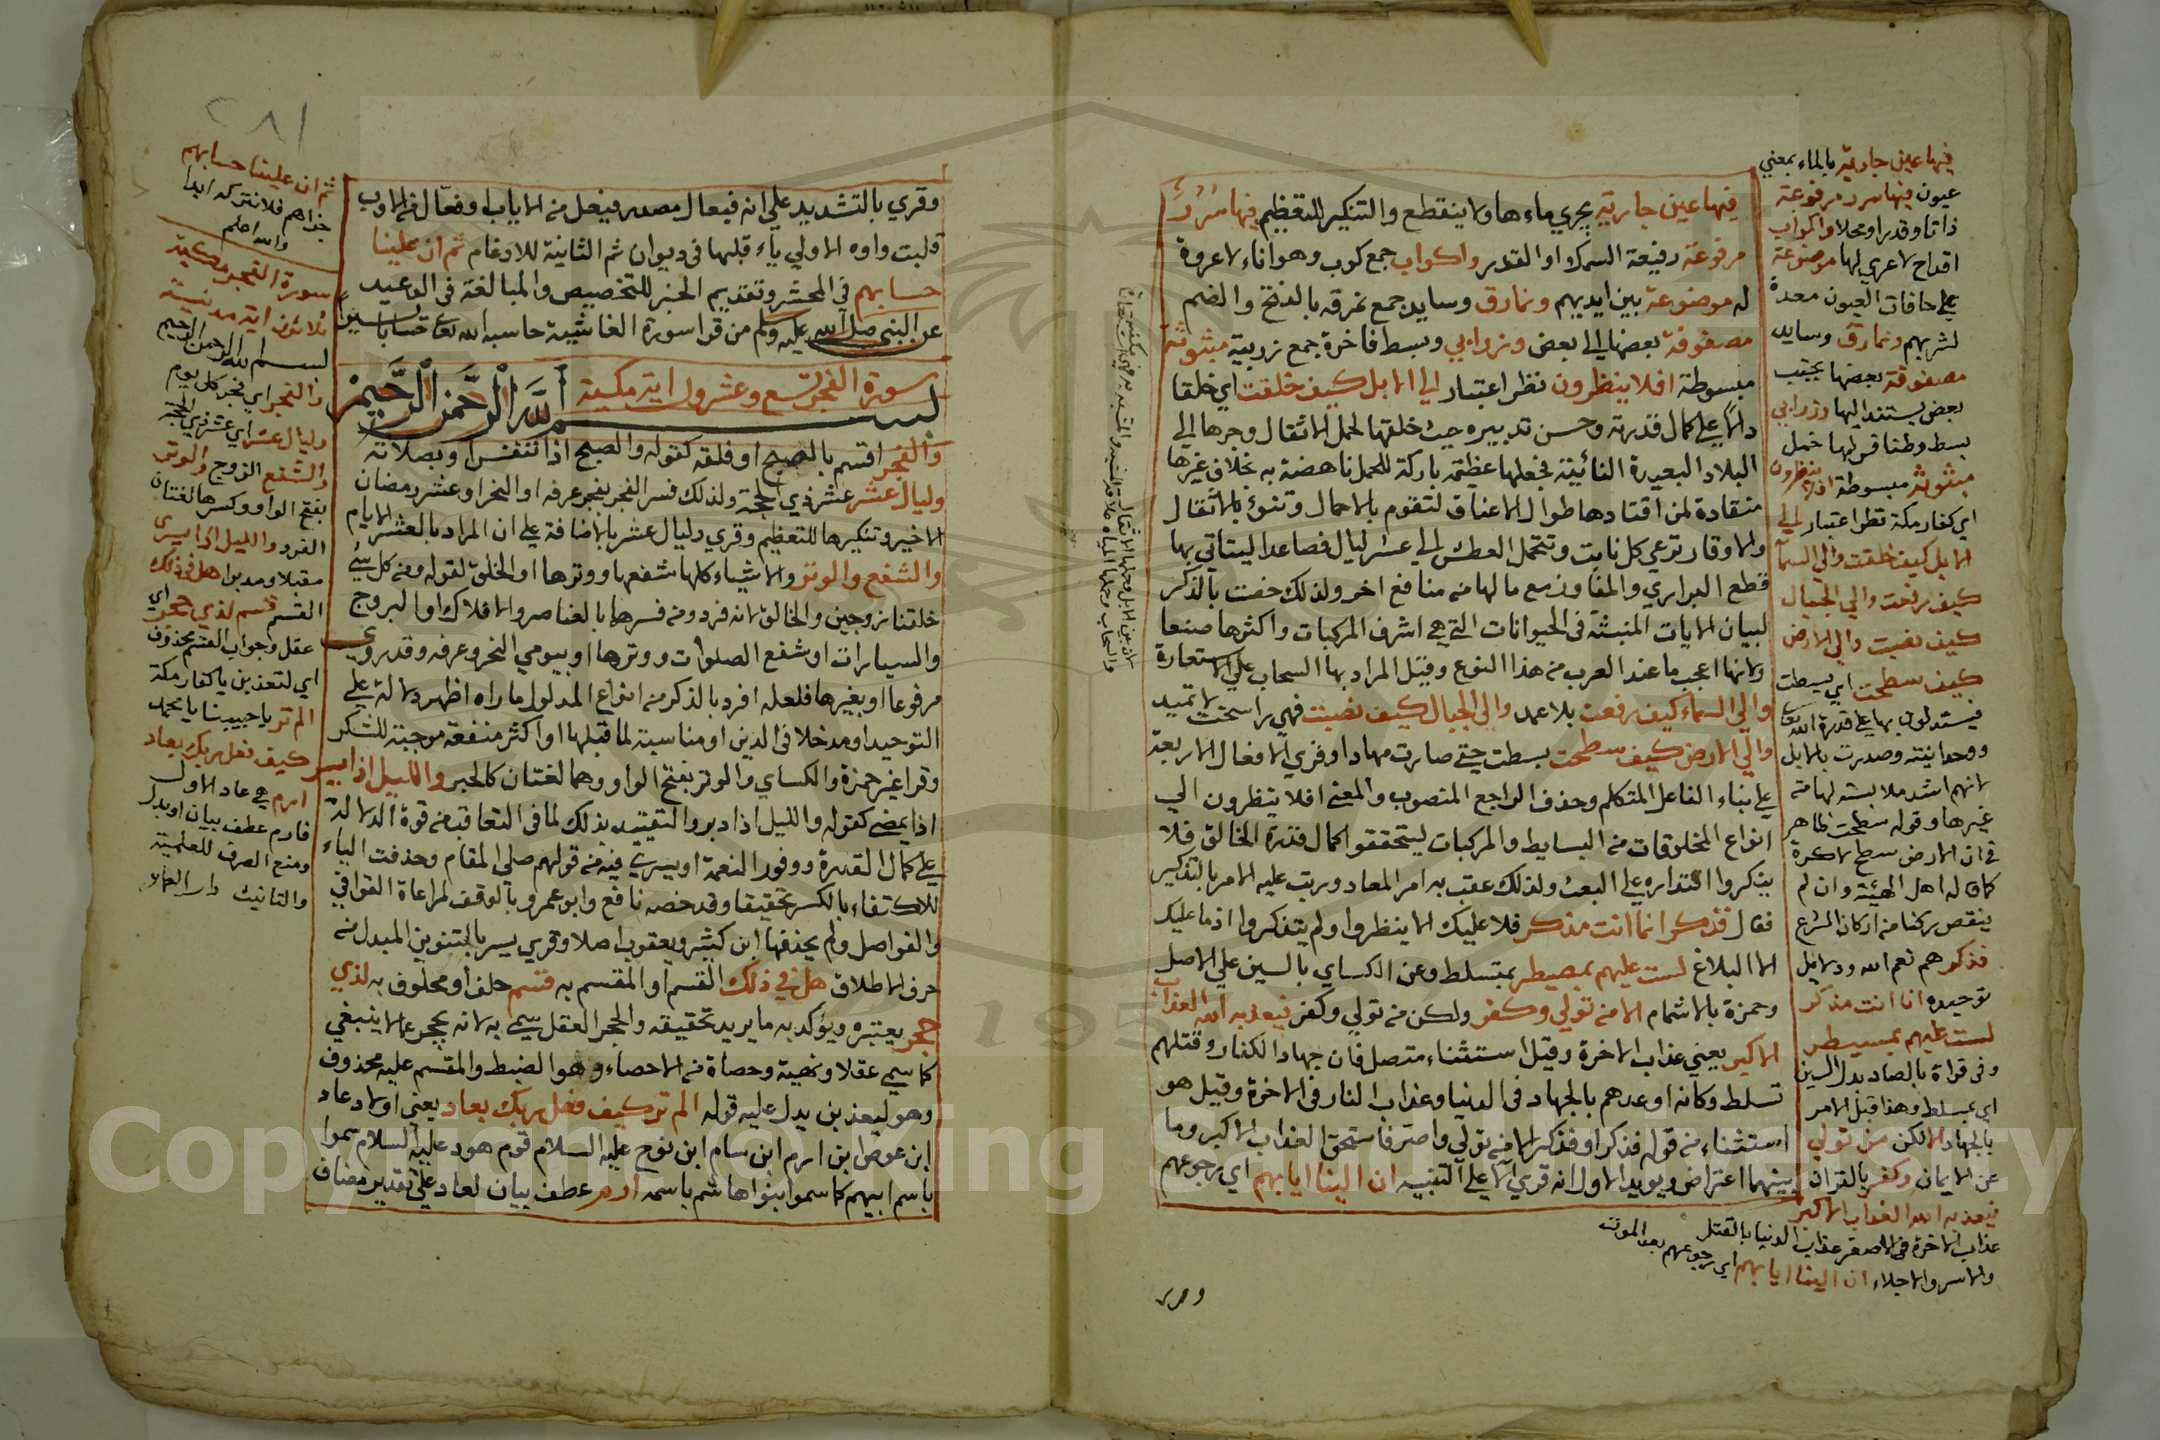 فيها عين جارية يجري ماءها ولا ينقطع والتنكير للتعظيم فيها سرر
مرفوعة رفيعة السمك او القدر واكواب جمع كوب وهو اناء لا عروة
له موضوعة بين ايديهم ونمارق وسايد جمع نمرقه بالفتح والضم
مصفوفة بعضها الى بعض وزرابي وبسط فاخرة جمع زربية مبثوثة
مبسوطة افلا ينظرون نظر اعتبار الى الابل كيف خلقت اي خلقا
دالا على كمال قدرته وحسن تدبيره حيث خلقها لحمل الاثقال وجرها الى
البلاد البعيدة النائية فجعلها عظيمة باركة للحمل ناهضة به بخلاف غيرها
منقادة لمن اقتادها طوال الاعناق لتقوم بالاحمال وتنوء بالاثقال
والاوقار ترعي كل نابت وتتحمل العطش الى عشر ليال فصاعدا ليتاتي بها
قطع البراري والمفاوز مع مالها من منافع اخر ولذلك خصت بالذكر
لبيان الايات المنبثة في الحيوانات التي هي اشرف المركبات واكثرها صنعا
ولانها اعجب ما عند العرب من هذا النوع وقيل المراد بها السحاب على الاستعارة
والي السماء كيف رفعت بلا عمد والى الجبال كيف نصبت فهي راسخة لا تميد
والي الارض كيف سطحت بسطت حتى صارت مهادا وقري الافعال الاربعة
على بناء الفاعل المتكلم وحذف الراجع المنصوب والمعنى افلا ينظرون الي
انواع المخلوقات من البسايط والمركبات ليتحققوا كمال قدرة الخالق فلا
ينكروا اقتداره على البعث ولذلك عقب به امر المعاد ورتب عليه الامر بالتذكير
فقال فذكر انما انت مذكر فلا عليك الا ينظروا ولم يتذكروا اذ ما عليك
الا البلاغ لست عليهم بمصيطر بمتسلط وعن الكساي بالسين على الاصل
وحمزة بالاشمام الا من تولي وكفر ولكن من تولي وكفر فيعذبه الله العذاب
الاكبر يعني عذاب الاخرة وقيل استثناء متصل فان جهاد الكفار وقتلهم
تسلط وكانه اوعدهم بالجهاد في الدنيا وعذاب النار في الاخرة وقيل هو
استثناء من قوله فذكر او فذكر الا من تولي واصر فاستحق العذاب الاكبر وما
بينهما اعتراض ويويد الاول انه قري الا على التنبيه ان الينا ايابهم اي رجوعهم
فيها عين جارية بالماء بمعني
عيون فيها سرر مرفوعة
ذاتا وقدرا ومحلا واكواب
اقداح لا عري لها موضوعة
على حافات العيون معدة
لشربهم ونمارق وسايد
مصفوفة بعضها بجنب
بعض يستند اليها وزرابي
بسط وطنافس لها خمل
مبثوثة مبسوطة افلا ينظرون
اي كفار مكة نظر اعتبار الي
الابل كيف خلقت والي السما
كيف رفعت والي الجبال
كيف نصبت والي الارض
كيف سطحت اي بسطت
فيستدلون بها على قدرة الله تعا
ووحدانيته وصدرت بالابل
لانهم اشد ملابسة لها من
غيرها وقوله سطحت ظاهر
في ان الارض سطح لا كرة
كما قاله اهل الهيئة وان لم
ينقص ركنا من اركان الشرع
فذكر هم نعم الله ودلايل
توحيده انما انت مذكر
لست عليهم بمسيطر
وفي قراة بالصاد بدل السين
اي بمسلط وهذا قبل الامر
بالجهاد الا لكن من تولي
عن الايمان وكفر بالقران
فيعذبه الله العذاب الاكبر
عذاب الاخرة في الاصغر عذاب الدنيا بالقتل
والاسر والاجلاء ان الينا ايابهم اي رجوعهم بعد الموت
وقري
وقري بالتشديد علي انه فيعال مصدر فيعل من الاياب او فعال من الاوب
قلبت واوه الاولي ياء قبلها في ديوان ثم الثانية للادغام ثم ان علينا
حسابهم في المحشر وتقديم الخبر للتخصيص والمبالغة في الوعيد
عن النبي صلى الله عليه ولم من قرا سورة الغاشية حاسبه الله تعا حسابا يسيرا
سورة الفجر تسع وعشرون اية مكية
بسم الله الرحمن الرحيم
والفجر اقسم بالصبح او فلقه كقوله والصبح اذا تنفس او بصلاته
وليال عشر عشر ذي الحجة ولذلك فسر الفجر بفجر عرفه او النحر او عشر رمضان
الاخير وتنكيرها للتعظيم وقري وليال عشر بالاضافة على ان المراد بالعشر الايام
والشفع والوتر والاشياء كلها شفعها ووترها او الخلق لقوله ومن كل شئ
خلقنا زوجين والخالق لانه فرد ومن فسرها بالعناصر والافلاك او البروج
والسيارات او شفع الصلوات ووترها او بيومي النحر وعرفه وقد روي
مرفوعا او بغيرها فلعله افرد بالذكر من انواع المدلول ما راه اظهر دلالة على
التوحيد او مدخلا في الدين او مناسبة لما قبلها او اكثر منفعة موجبة للشكر
وقرا غير حمزة والكساي والوتر بفتح الواو وهما لغتان كالحبر والليل اذا يسر
اذا يمضي كقوله والليل اذا دبر والتقييد بذلك لما في التعاقب من قوة الدلالة
علي كمال القدرة ووفور النعمة او يسري فيه من قولهم صلى المقام وحذفت الياء
للاكتفاء بالكسر تخفيفا وقد خصه نافع وابو عمرو بالوقف لمراعاة القوافي
والفواصل ولم يحذفها ابن كثير ويعقوب اصلا وقري يسر بالتنوين المبدل من
حرف الاطلاق هل في ذلك القسم او المقسم به قسم حلف او محلوف به لذي
حجر يعتبره ويؤكد به ما يريد تحقيقه والحجر العقل سمي به لانه يحجر عما لا ينبغي
كما سمي عقلا ونهية وحصاة من الاحصاء وهو الضبط والمقسم عليه محذوف
وهو ليعذبن يدل عليه قوله الم تر كيف فعل ربك بعاد يعني اولاد عاد
ابن عوص ابن ارم ابن سام ابن نوح عليه السلام قوم هود عليه السلام سموا
باسم ابيهم كما سموا بنوا هاشم باسمه ارم عطف بيان لعاد على تقدير مضاف
٢٨١
ثم ان علينا حسابهم
جزاهم فلا نتركه ابدا
والله اعلم
سورة الفجر مكية
ثلاثون اية مدنية
بسم الله الرحمن الرحيم
والفجر اي فجر كل يوم
وليال عشر اي عشر ذي الحجة
والشفع الزوج والوتر
بفتح الواو وكسرها لغتان
الفرد والليل اذا يسري
مقبلا ومدبرا هل في ذلك
القسم قسم لذي حجر اي
عقل وجواب القسم محذوف
اي لتعذبن يا كفار مكة
الم تر يا حبيبنا يا محمد
كيف فعل ربك بعاد
ارم هي عاد الاولي
فارم عطف بيان او بدل
ومنع الصرف للعلمية
والتانيث ذات العماد
Copyright © King Saud University
1957